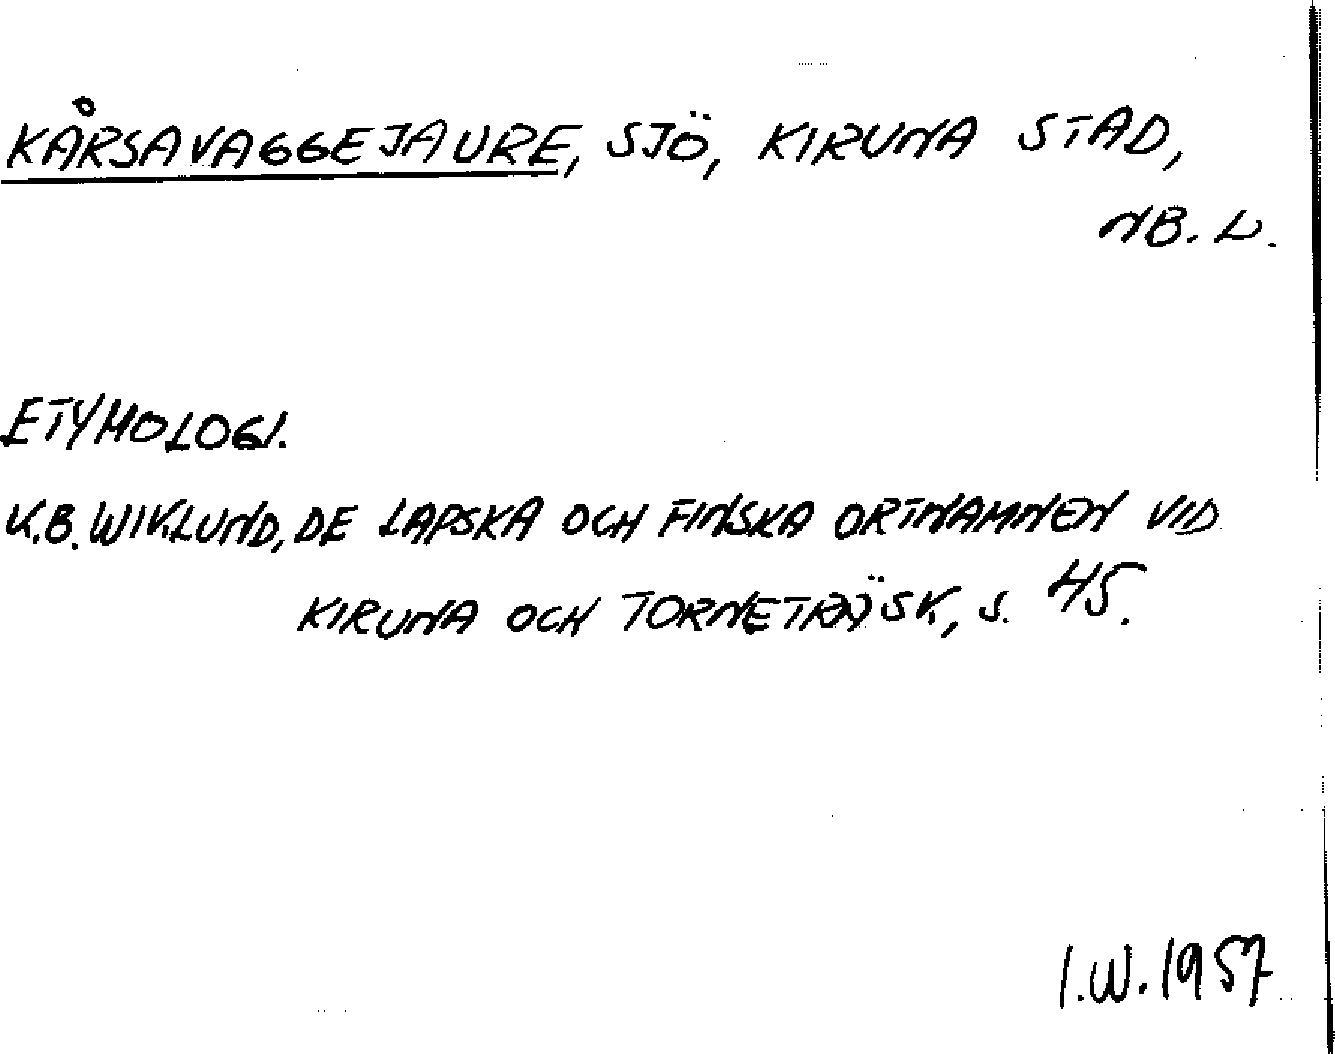 KÅRSAVAGGEJAURE, SJÖ, KIRUNA STAD,
NB. L.
ETYMOLOGI.
K.B. WIKLUND, DE LAPSKA OCH FINSKA ORTNAMNEN VID
KIRUNA OCH TORNETRÄSK, S. 45.
I.W. 1957